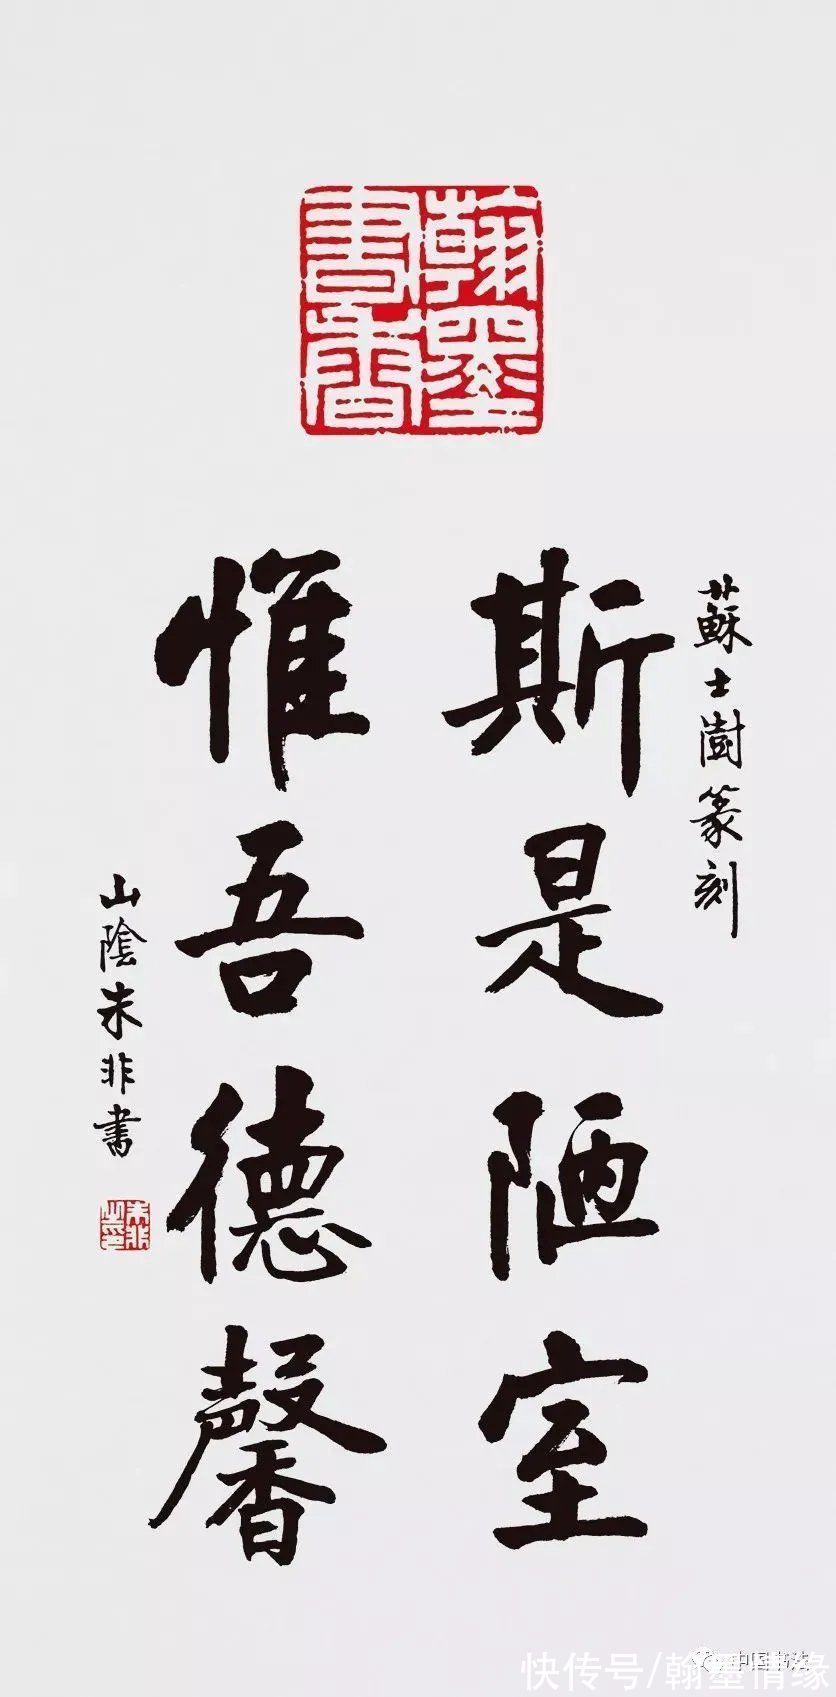 翰墨
書香
蘇士澍篆刻
斯是陋室
惟吾德馨
山陰朱非書
朱非
快传号/翰墨情缘
中国书法